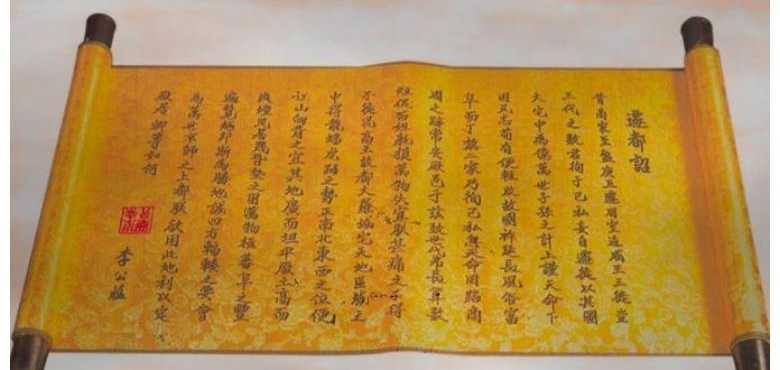 遷都詔
昔商家至盤庚五遷周室迨成王三徙豈
三代之數君徇于己私妄自遷徙以其圖
大宅中為億萬世子孫之計上謹天命下
因民志苟有便輒改故國祚延長風俗富
阜而丁黎二家乃徇己私忽天命罔蹈商
周之跡常安厥邑于茲致世代弗長算數
短促百姓耗損萬物失宜朕甚痛之不得
不徙況高王故都大羅城宅天地區域之
中得龍蟠虎踞之勢正南北東西之位便
江山向背之宜其地廣而坦平厥土高而
爽塏民居蔑昏墊之困萬物極蕃阜之豐
遍覽越邦斯為勝地誠四方輻輳之要會
為萬世京師之上都朕欲因此地利以定
厥居卿等如何
李公蘊